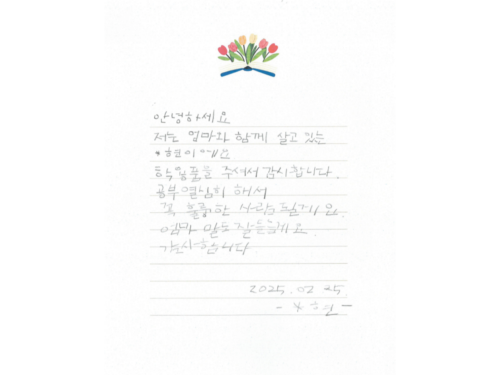 안녕하세요
저는 엄마와 함께 살고 있는
학용품을 주셔서 감사합니다.
공부 열심히 해서
꼭 훌륭한 사람 될게요.
엄마 말도 잘들을게요
감사합니다.
2025. 02. 25.